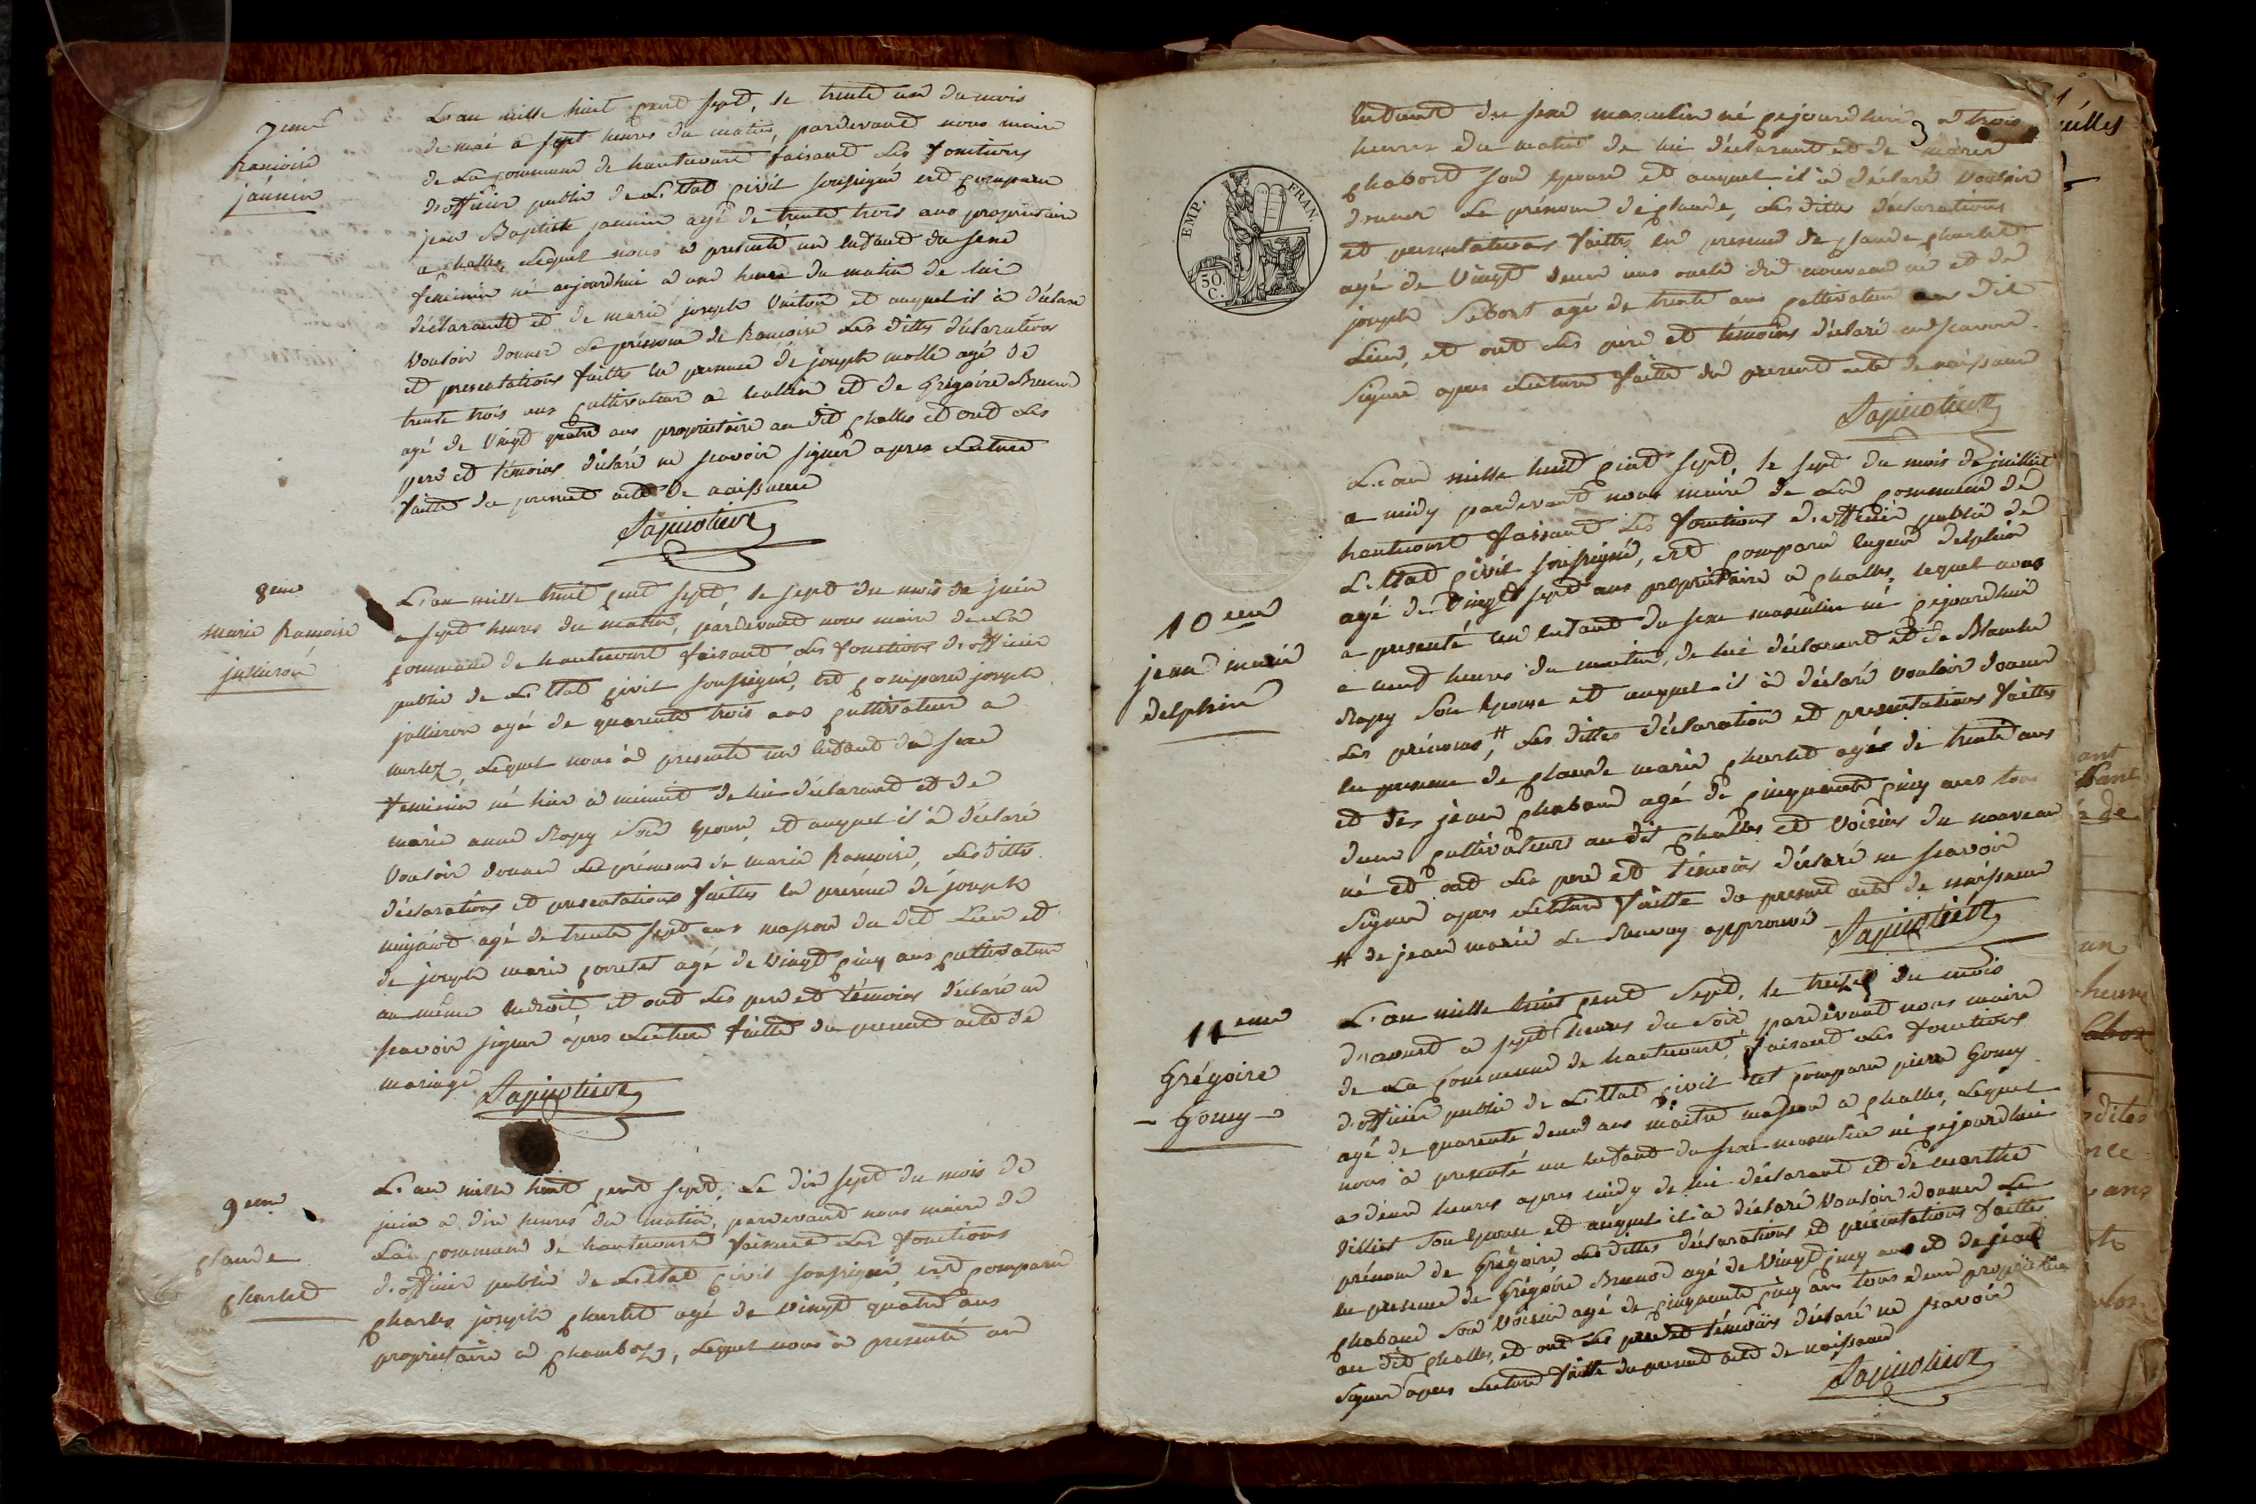 7eme
francoise
jannin
L'an mille huit cent sept, le trente un du mois
de mai a sept heures du matin, pardevant nous maire
de La commune de hautecourt faisant Les fonctions
d'officier public de L'Etat civil soussigné est comparu
jean Baptiste jannin agé de trente trois ans proprietaire
a challes, Lequel nous a presenté un enfant du sexe
feminin né aujourdhui a une heure du matin de lui
déclarant et de marie joseph et auquel il à déclaré
Vouloir donner Le prénom de francoise Les dittes déclarations
et presentations faittes en presence de joseph molle agé de
trente trois ans cultivateur a et de Grégoire Brunod
agé de Vingt quatre ans proprietaire au dit challes et ont Les
pere et témoins déclaré ne scavoir signer apres Lecture
faitte du present acte de naissance
8eme
marie francoise
jullieron
L'an mille huit cent sept, le sept du mois de juin
a sept heures du matin, pardevant nous maire de La
commune de hautecourt faisant Les fonctions d'officier
public de L'Etat civil soussigné, est comparu joseph
jullieron agé de quarente trois ans cultivateur a
Lequel nous à presenté un enfant du sexe
feminin né hier a minuit de lui déclarant et de
marie anne Rapy Son Epouse et auquel il à déclaré
Vouloir donner Le prénom de marie francoise, Les dittes
déclarations et presentations faittes en présence de joseph
agé de trente sept ans masson du dit Lieu et
de joseph marie agé de Vingt cinq ans cultivateur
au même Endroit, et ont Les pere et témoins déclaré ne
scavoir signer àpres Lecture faitte du present acte de
mariage
9eme
Claude
Charlet
L'an mille huit cent sept, Le dix sept du mois de
juin a dix heures du matin, pardevant nous maire de
La commune de hautecourt faisant Les fonctions
d'officier public de L'Etat civil soussigné est comparu
charles joseph charlet agé de vingt quatre ans
proprietaire a, Lequel nous à presenté un
EMP. FRAN.
50. C.
3
Enfant du sexe masculin né cejourdhui a trois
heures du matin de lui déclarant et de marie
chabord son Epouse et auquel il à déclaré Vouloir
donner Le prénom de claude, Les dittes déclarations
et presentations faittes en presence de claude charlet
agé de Vingt deux ans oncle du nouveau né et de
joseph agé de trente ans cultivateur au dit
Lieu, et ont Les pere et témoins déclaré ne scavoir
Signer apres Lecture faitte du present acte de naissance
10eme
jean marie
delphin
L'an mille huit cent sept, le sept du mois de juillet
a midy pardevant nous maire de La commune de
hautecourt faisant Les fonctions d'officier public de
L'Etat civil soussigné, est comparu Eugene delphin
agé de Vingt sept ans proprietaire a challes, lequel nous
a presenté un Enfant du sexe masculin né cejourdhui
a neuf heures du matin, de lui déclarant et de Blanche
Rapy Son Epouse et auquel il à déclaré Vouloir donner
Les prénoms #, Les dittes déclaration et presentations faittes
En presence de claude marie charlet agé de trente ans
et de jean chaband agé de cinquante cinq ans tous
deux cultivateurs au dit challes et Voisins du nouveau
né et ont Les pere et témoins déclaré ne scavoir
Signer apres Lecture faitte du present acte de naissance
# de jean marie Le Renvoy approuvé
11eme
Grégoire
- Gomy -
L'an mille huit cent Sept, le treize du mois
d'aoust a sept heures du soir, pardevant nous maire
de La commune de hautecourt, faisant Les fonctions
d'officier public de L'Etat civil est comparu pierre Gomy
agé de quarente deux ans maitre masson a challes, Lequel
nous à presenté un Enfant du sexe masculin né cejourdhui
a deux heures apres midy de lui déclarant et de marthe
Villiet Son Epouse et auquel il à déclaré Vouloir donner Le
prénom de Grégoire Les dittes déclarations et présentations faittes
En presence de Grégoire Brunod agé de Vingt cinq ans et de jean
chaband Son Voisin agé de cinquante cinq ans tous deux proprietaires
au dit challes, et ont Les pere et témoins déclaré ne scavoir
Signer apres Lecture faitte du present acte de naissance